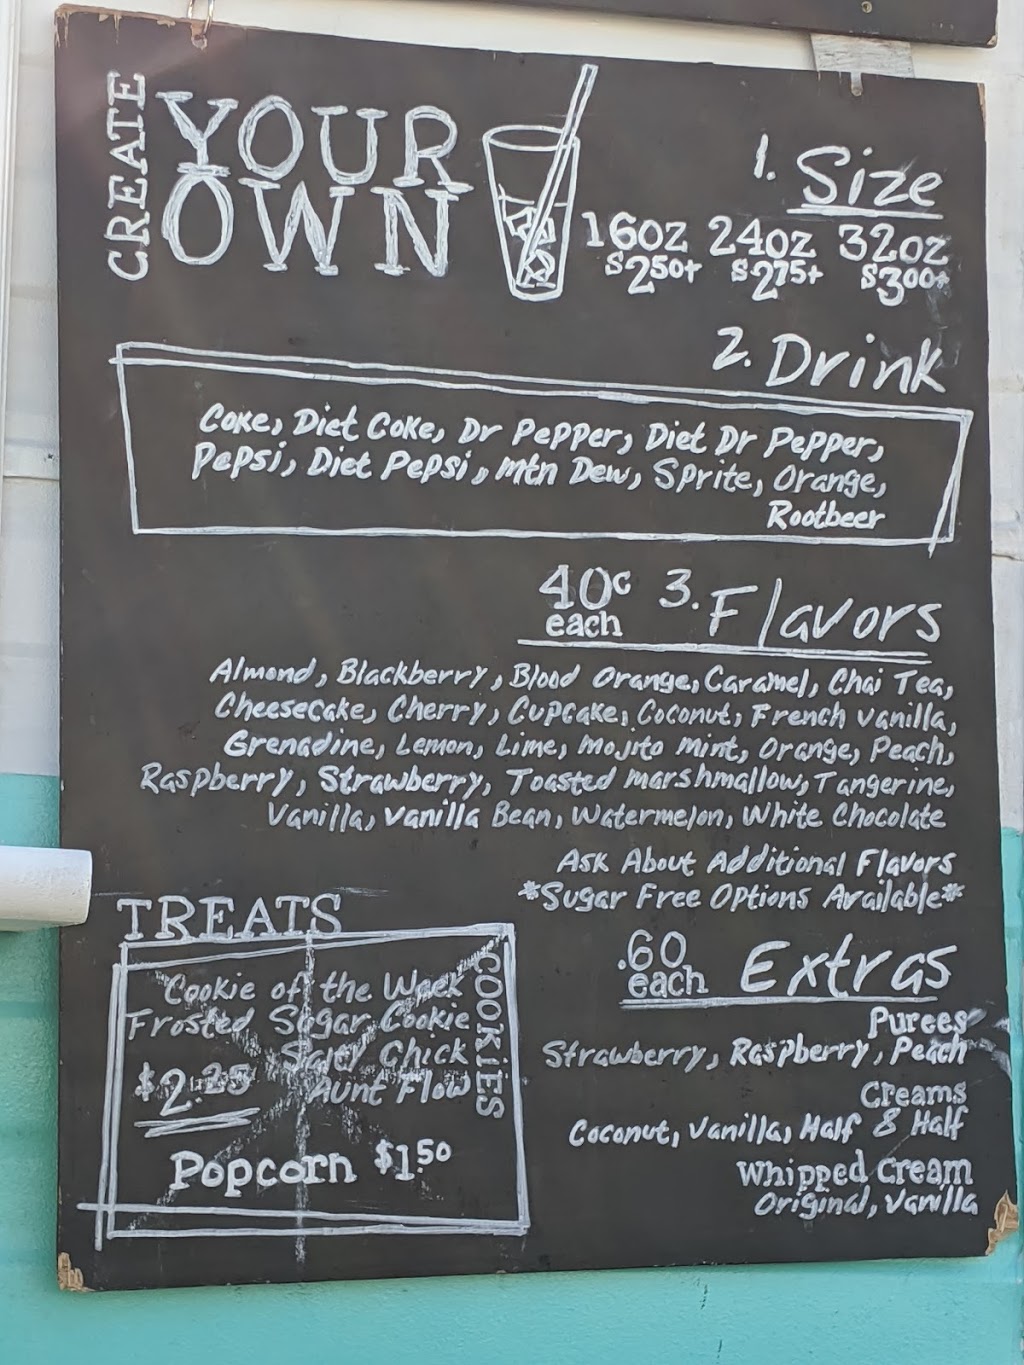 CREATE
YOUR
OWN
1. Size
16oz 24oz 32oz
$2.50+ $2.75+ $3.00+
2. Drink
Coke, Diet Coke, Dr Pepper, Diet Dr Pepper,
Pepsi, Diet Pepsi, mtn Dew, Sprite, Orange,
Rootbeer
40¢ each 3. Flavors
Almond, Blackberry, Blood Orange, Caramel, Chai Tea,
Cheesecake, Cherry, Cupcake, Coconut, French Vanilla,
Grenadine, Lemon, Lime, Mojito mint, Orange, Peach,
Raspberry, Strawberry, Toasted marshmallow, Tangerine,
Vanilla, Vanilla Bean, Watermelon, White Chocolate
Ask About Additional Flavors
*Sugar Free Options Available*
TREATS
COOKIES
Cookie of the Week
Frosted Sugar Cookie
Salty Chick
$2.25 Aunt Flow
Popcorn $1.50
.60 each Extras
Purees
Strawberry, Raspberry, Peach
Creams
Coconut, Vanilla, Half & Half
Whipped Cream
Original, Vanilla